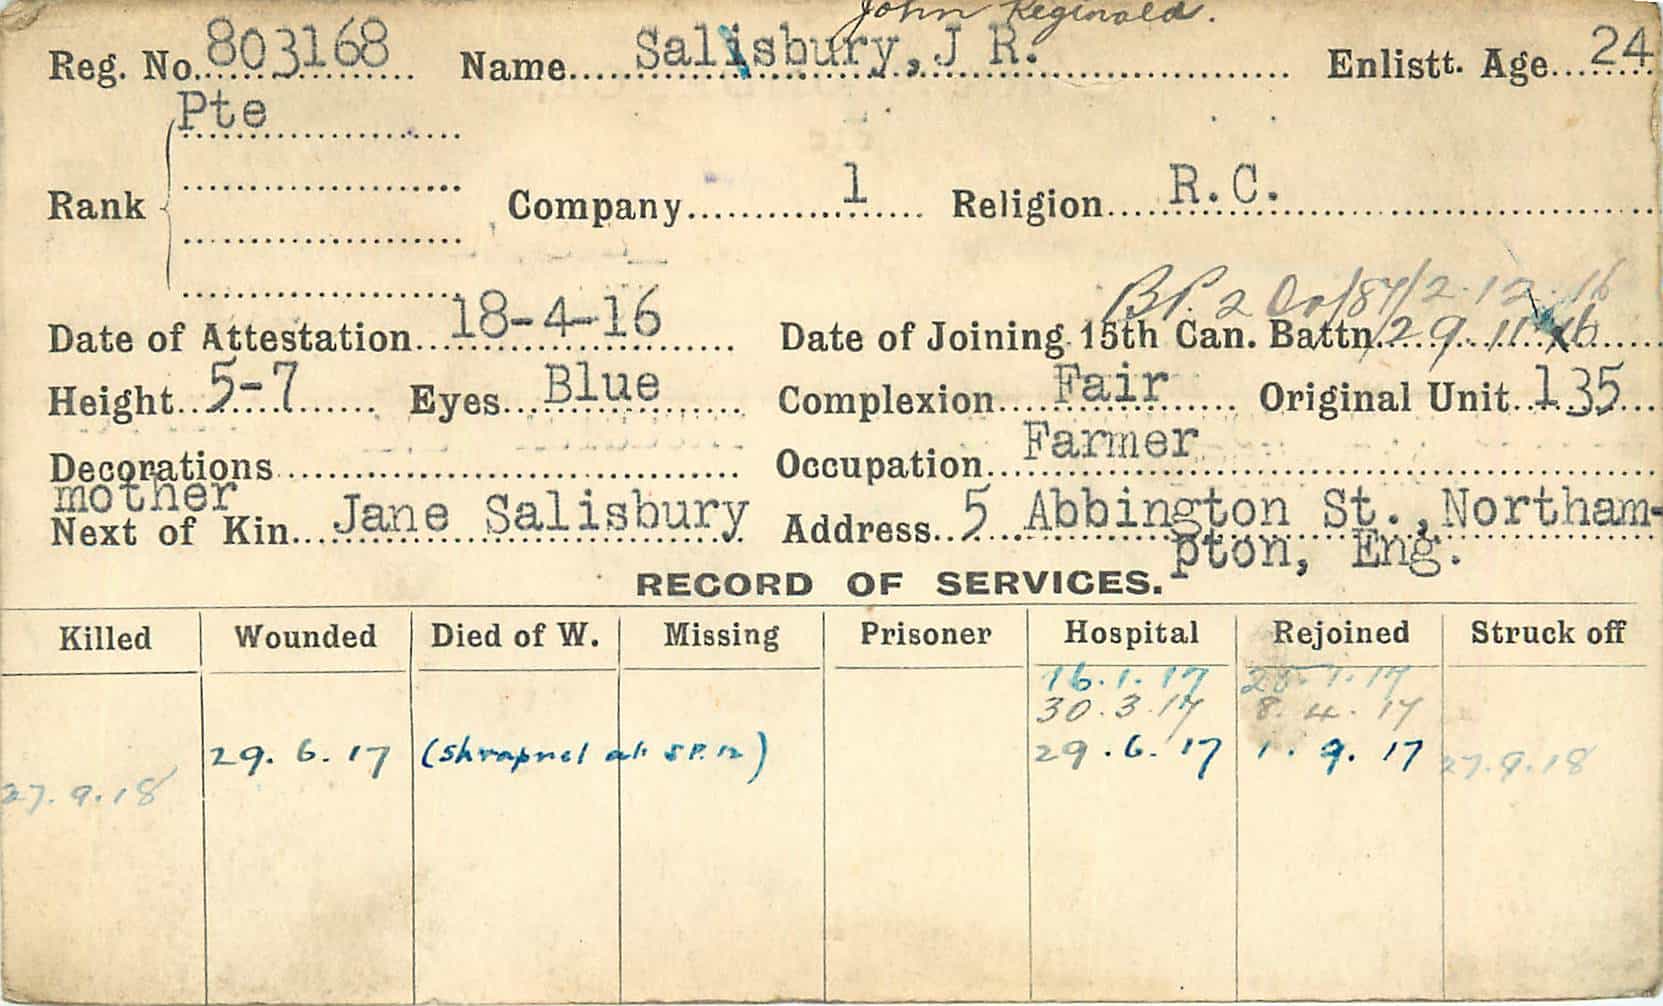 John Reginald.
Reg. No. 803168 Name Salisbury, J R. Enlistt. Age 24
Pte
Rank Company 1 Religion R.C.
B.P. 2 Co/87/2.12.16
Date of Attestation 18-4-16 Date of Joining 15th Can. Battn 29.11.16
Height 5-7 Eyes Blue Complexion Fair Original Unit 135
Decorations Occupation Farmer
mother
Next of Kin Jane Salisbury Address 5 Abbington St., Northam-
pton, Eng.
RECORD OF SERVICES.
Killed Wounded Died of W. Missing Prisoner Hospital Rejoined Struck off
16.1.17 28.1.17
30.3.17 8.4.17
29.6.17 (Shrapnel at S.P.12) 29.6.17 1.9.17 27.9.18
27.9.18